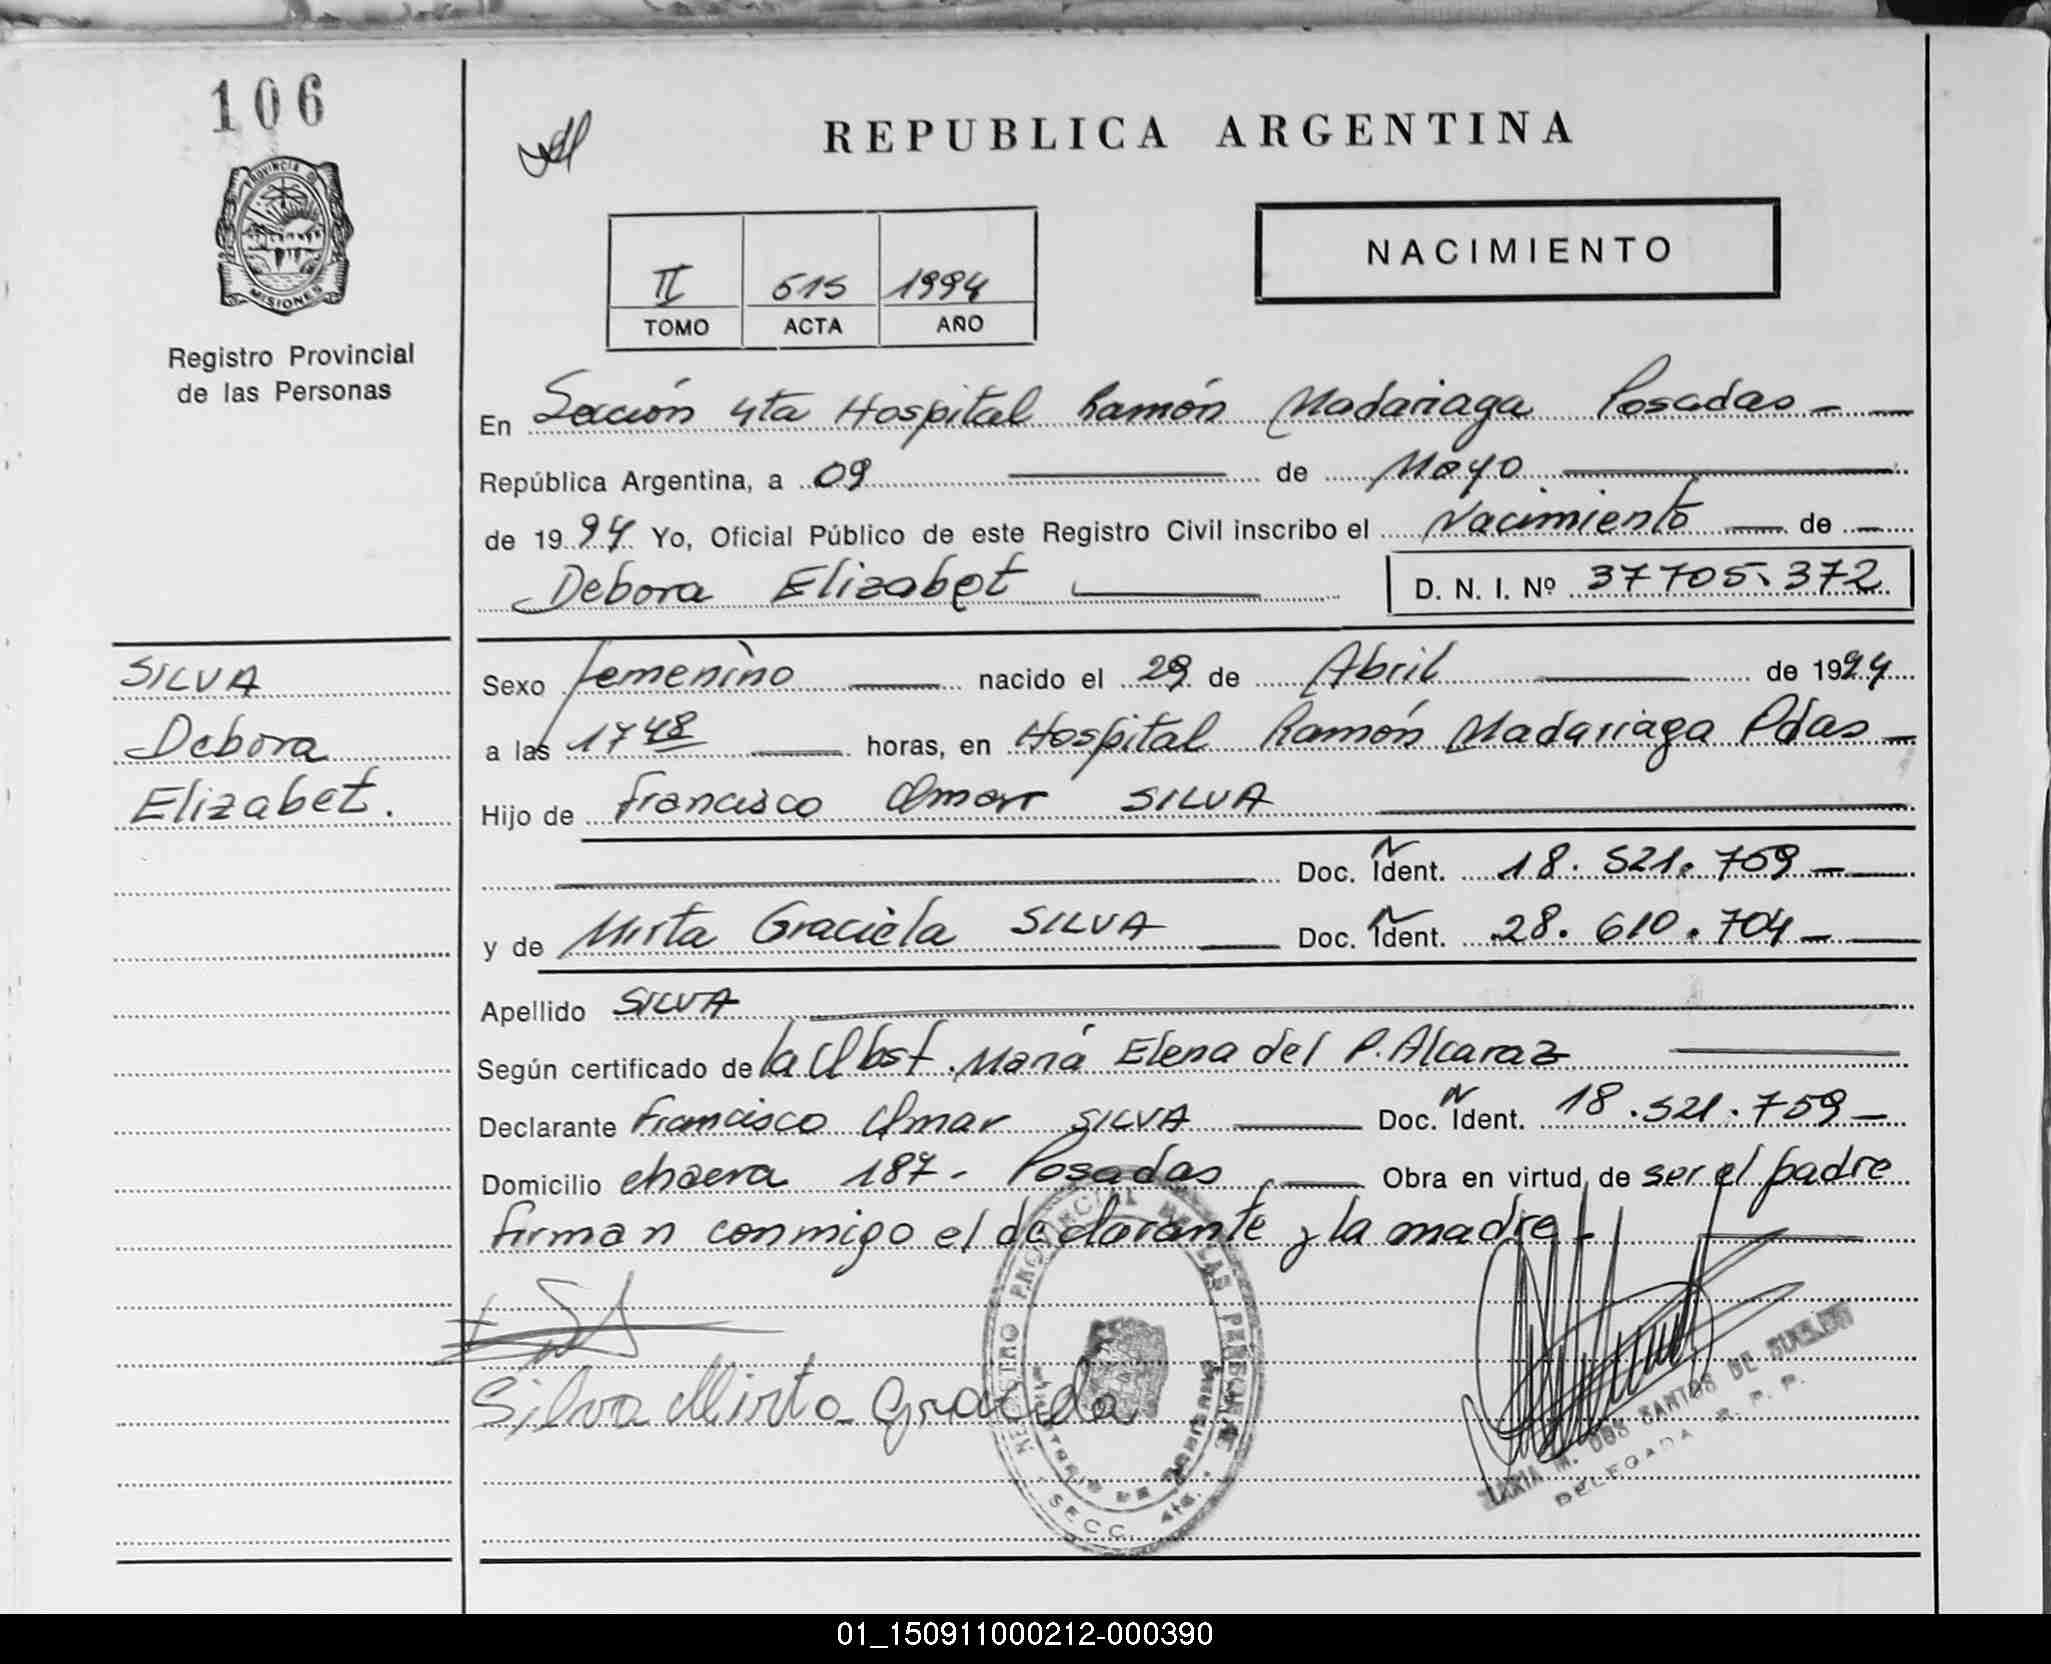 106
REPUBLICA ARGENTINA
PROVINCIA DE
MISIONES
Registro Provincial
de las Personas
NACIMIENTO
II 615 1994
TOMO ACTA AÑO
En Sección 4ta Hospital Ramón Madariaga Posadas -
República Argentina, a 09 de Mayo
de 1994 Yo, Oficial Público de este Registro Civil inscribo el Nacimiento de
Debora Elizabet D. N. I. Nº 37705.372
SILVA
Debora
Elizabet.
Sexo femenino nacido el 29 de Abril de 1994
a las 17 48 horas, en Hospital Ramón Madariaga Pdas -
Hijo de Francisco Omar SILVA
Doc. N Ident. 18.521.759 -
y de Mirta Graciela SILVA Doc. N Ident. 28.610.704 -
Apellido SILVA
Según certificado de la Obst. María Elena del P. Alcaraz
Declarante Francisco Omar SILVA Doc. N Ident. 18.521.759 -
Domicilio chacra 187 - Posadas Obra en virtud de ser el padre
firman conmigo el declarante y la madre -
Silva Mirta Graciela
REGISTRO PROVINCIAL DE LAS PERSONAS
SECC. 4ta.
MARIA M. DOS SANTOS DE
DELEGADA R. P. P.
01_150911000212-000390